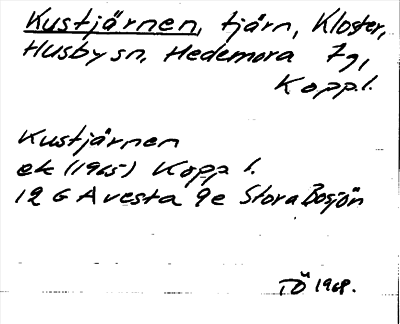 Kustjärnen, tjärn, Kloster,
Husby sn, Hedemora tg,
Kopp.l.
Kustjärnen
ek (1965) Kopp l.
12 G Avesta 9e Stora Bosjön
TÖ 1968.